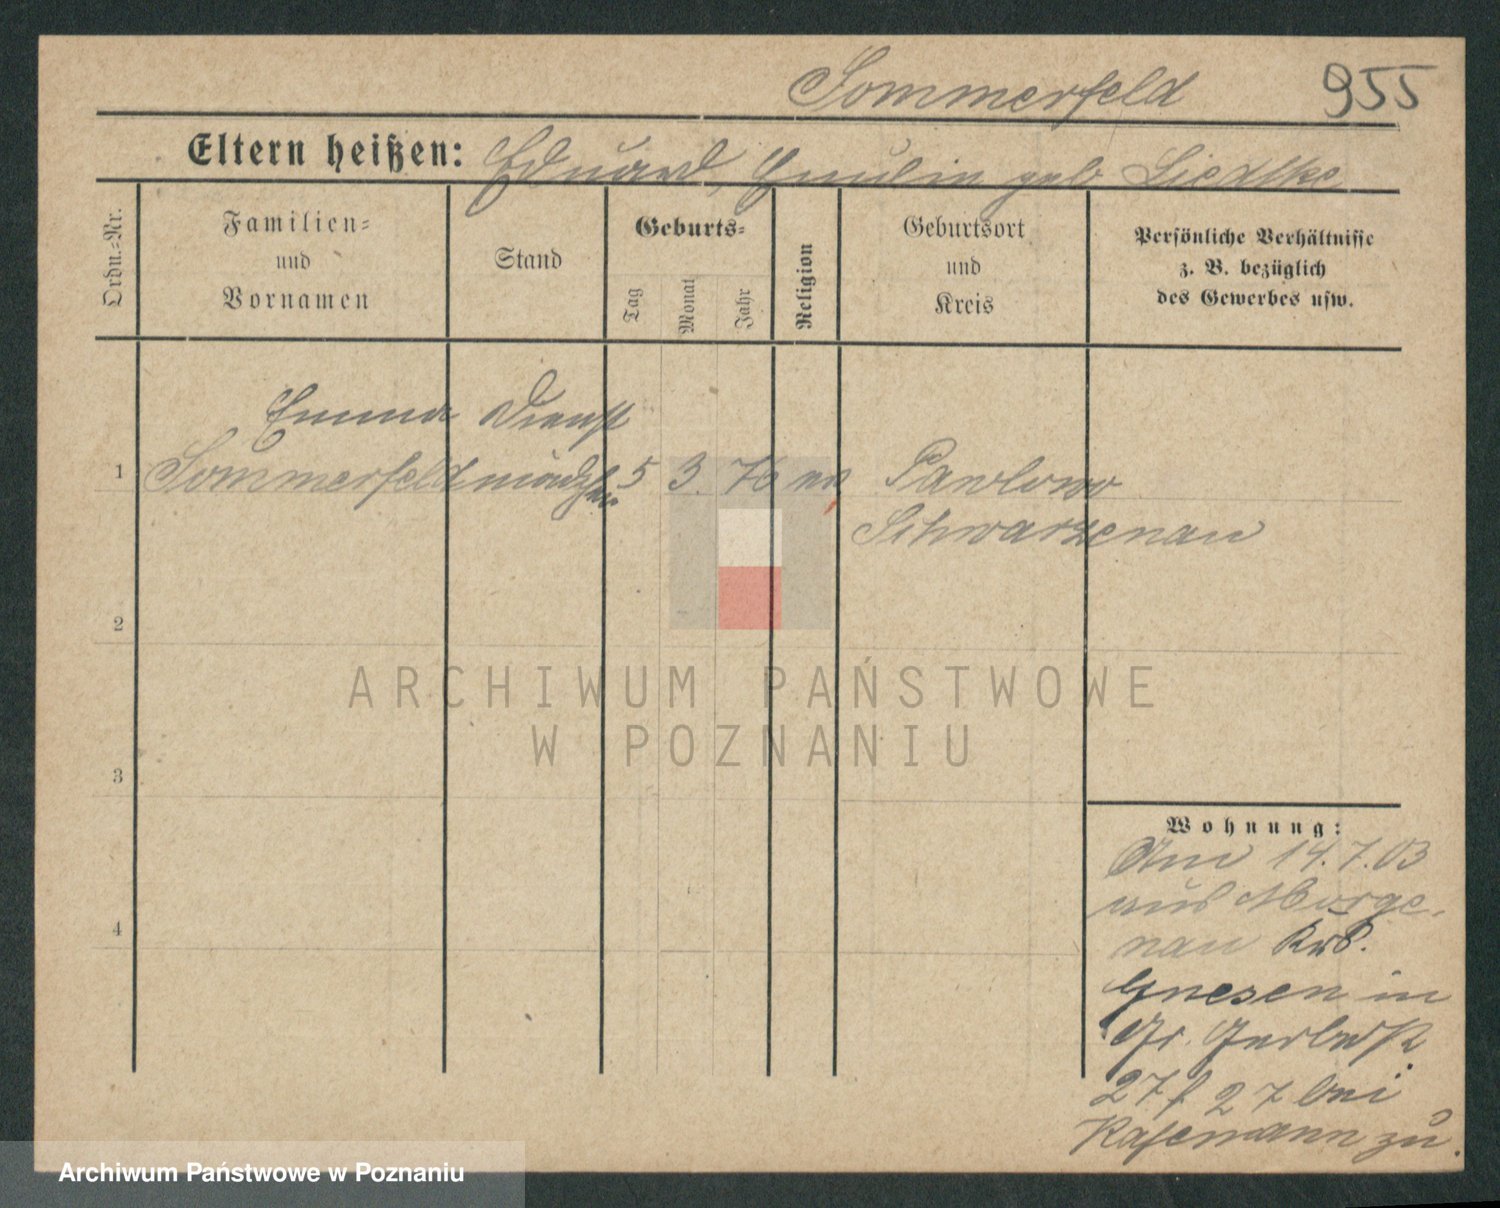 Sommerfeld 955
Eltern heißen: Eduard, Emilie geb Liedtke
Ordn.=Nr.
Familien=
und
Vornamen
Stand
Geburts=
Tag
Monat
Jahr
Religion
Geburtsort
und
Kreis
Persönliche Verhältnisse
z. B. bezüglich
des Gewerbes usw.
Emma Dienst
1 Sommerfeld mädchen 5 3. 76 ev Pawlowo
Schwarzenau
2
3
4
Wohnung:
Am 14.7.03
aus Morge-
nau Krs.
Gnesen in
Gr. Gerberst
27 27 bei
Kasemann zu.
ARCHIWUM PAŃSTWOWE
W POZNANIU
Archiwum Państwowe w Poznaniu